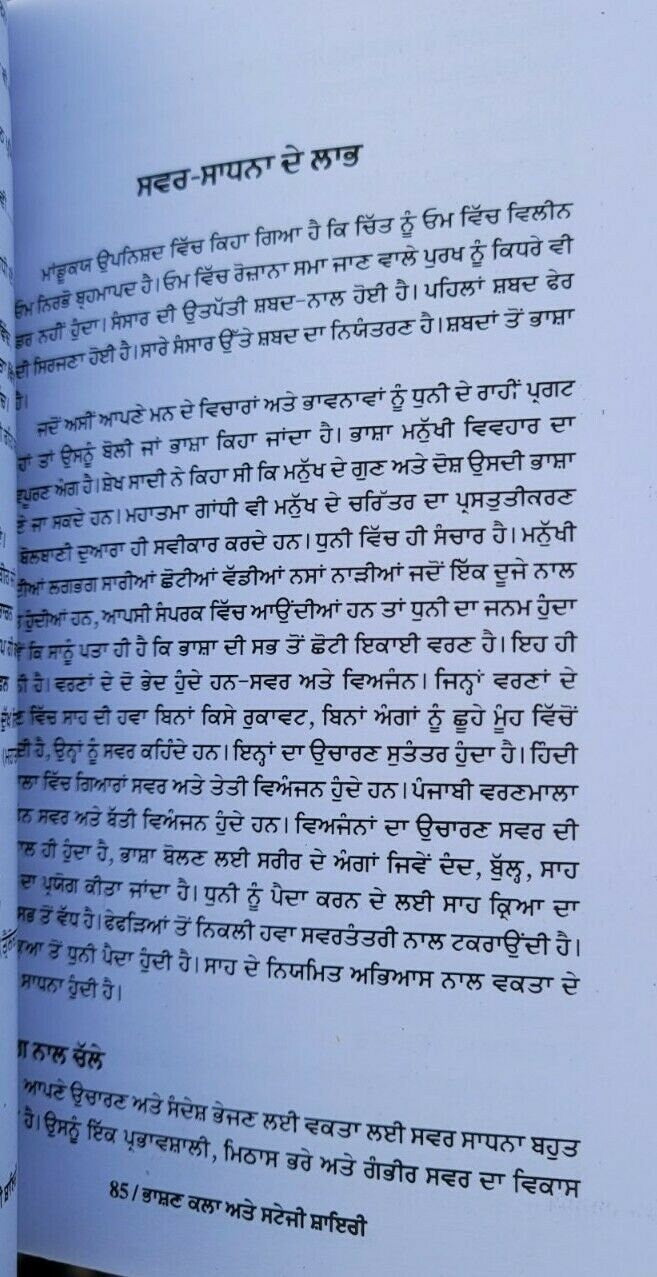 ਸਵਰ-ਸਾਧਨਾ ਦੇ ਲਾਭ
ਮਾਂਡੂਕਯ ਉਪਨਿਸ਼ਦ ਵਿੱਚ ਕਿਹਾ ਗਿਆ ਹੈ ਕਿ ਚਿੱਤ ਨੂੰ ਓਮ ਵਿੱਚ ਵਿਲੀਨ
ਓਮ ਨਿਰਭੋ ਬ੍ਰਹਮਾਪਦ ਹੈ। ਓਮ ਵਿੱਚ ਰੋਜ਼ਾਨਾ ਸਮਾ ਜਾਣ ਵਾਲੇ ਪੁਰਖ ਨੂੰ ਕਿਧਰੇ ਵੀ
ਡਰ ਨਹੀਂ ਹੁੰਦਾ। ਸੰਸਾਰ ਦੀ ਉਤਪੱਤੀ ਸ਼ਬਦ-ਨਾਲ ਹੋਈ ਹੈ। ਪਹਿਲਾਂ ਸ਼ਬਦ ਫੇਰ
ਦੀ ਸਿਰਜਣਾ ਹੋਈ ਹੈ। ਸਾਰੇ ਸੰਸਾਰ ਉੱਤੇ ਸ਼ਬਦ ਦਾ ਨਿਯੰਤਰਣ ਹੈ। ਸ਼ਬਦਾਂ ਤੋਂ ਭਾਸ਼ਾ
ਹੈ।
ਜਦੋਂ ਅਸੀਂ ਆਪਣੇ ਮਨ ਦੇ ਵਿਚਾਰਾਂ ਅਤੇ ਭਾਵਨਾਵਾਂ ਨੂੰ ਧੁਨੀ ਦੇ ਰਾਹੀਂ ਪ੍ਰਗਟ
ਹਾਂ ਤਾਂ ਉਸਨੂੰ ਬੋਲੀ ਜਾਂ ਭਾਸ਼ਾ ਕਿਹਾ ਜਾਂਦਾ ਹੈ। ਭਾਸ਼ਾ ਮਨੁੱਖੀ ਵਿਵਹਾਰ ਦਾ
ਅੰਗ ਹੈ। ਸ਼ੇਖ ਸਾਦੀ ਨੇ ਕਿਹਾ ਸੀ ਕਿ ਮਨੁੱਖ ਦੇ ਗੁਣ ਅਤੇ ਦੋਸ਼ ਉਸਦੀ ਭਾਸ਼ਾ
ਜਾ ਸਕਦੇ ਹਨ। ਮਹਾਤਮਾ ਗਾਂਧੀ ਵੀ ਮਨੁੱਖ ਦੇ ਚਰਿੱਤਰ ਦਾ ਪ੍ਰਸਤੁਤੀਕਰਣ
ਬੋਲਬਾਣੀ ਦੁਆਰਾ ਹੀ ਸਵੀਕਾਰ ਕਰਦੇ ਹਨ। ਧੁਨੀ ਵਿੱਚ ਹੀ ਸੰਚਾਰ ਹੈ। ਮਨੁੱਖੀ
ਲਗਭਗ ਸਾਰੀਆਂ ਛੋਟੀਆਂ ਵੱਡੀਆਂ ਨਸਾਂ ਨਾੜੀਆਂ ਜਦੋਂ ਇੱਕ ਦੂਜੇ ਨਾਲ
ਹੁੰਦੀਆਂ ਹਨ, ਆਪਸੀ ਸੰਪਰਕ ਵਿੱਚ ਆਉਂਦੀਆਂ ਹਨ ਤਾਂ ਧੁਨੀ ਦਾ ਜਨਮ ਹੁੰਦਾ
ਕਿ ਸਾਨੂੰ ਪਤਾ ਹੀ ਹੈ ਕਿ ਭਾਸ਼ਾ ਦੀ ਸਭ ਤੋਂ ਛੋਟੀ ਇਕਾਈ ਵਰਣ ਹੈ। ਇਹ ਹੀ
ਹੈ। ਵਰਣਾਂ ਦੇ ਦੋ ਭੇਦ ਹੁੰਦੇ ਹਨ-ਸਵਰ ਅਤੇ ਵਿਅਜੰਨ। ਜਿਨ੍ਹਾਂ ਵਰਣਾਂ ਦੇ
ਵਿੱਚ ਸਾਹ ਦੀ ਹਵਾ ਬਿਨਾਂ ਕਿਸੇ ਰੁਕਾਵਟ, ਬਿਨਾਂ ਅੰਗਾਂ ਨੂੰ ਛੂਹੇ ਮੂੰਹ ਵਿੱਚੋਂ
ਹੈ, ਉਨ੍ਹਾਂ ਨੂੰ ਸਵਰ ਕਹਿੰਦੇ ਹਨ। ਇਨ੍ਹਾਂ ਦਾ ਉਚਾਰਣ ਸੁਤੰਤਰ ਹੁੰਦਾ ਹੈ। ਹਿੰਦੀ
ਵਿੱਚ ਗਿਆਰਾਂ ਸਵਰ ਅਤੇ ਤੇਤੀ ਵਿਅੰਜਨ ਹੁੰਦੇ ਹਨ। ਪੰਜਾਬੀ ਵਰਣਮਾਲਾ
ਸਵਰ ਅਤੇ ਬੱਤੀ ਵਿਅੰਜਨ ਹੁੰਦੇ ਹਨ। ਵਿਅਜੰਨਾਂ ਦਾ ਉਚਾਰਣ ਸਵਰ ਦੀ
ਹੀ ਹੁੰਦਾ ਹੈ, ਭਾਸ਼ਾ ਬੋਲਣ ਲਈ ਸਰੀਰ ਦੇ ਅੰਗਾਂ ਜਿਵੇਂ ਦੰਦ, ਬੁੱਲ੍ਹ, ਸਾਹ
ਦਾ ਪ੍ਰਯੋਗ ਕੀਤਾ ਜਾਂਦਾ ਹੈ। ਧੁਨੀ ਨੂੰ ਪੈਦਾ ਕਰਨ ਦੇ ਲਈ ਸਾਹ ਕ੍ਰਿਆ ਦਾ
ਸਭ ਤੋਂ ਵੱਧ ਹੈ। ਫੇਫੜਿਆਂ ਤੋਂ ਨਿਕਲੀ ਹਵਾ ਸਵਰਤੰਤਰੀ ਨਾਲ ਟਕਰਾਉਂਦੀ ਹੈ।
ਤੋਂ ਧੁਨੀ ਪੈਦਾ ਹੁੰਦੀ ਹੈ। ਸਾਹ ਦੇ ਨਿਯਮਿਤ ਅਭਿਆਸ ਨਾਲ ਵਕਤਾ ਦੇ
ਸਾਧਨਾ ਹੁੰਦੀ ਹੈ।
ਨਾਲ ਚੱਲੇ
ਆਪਣੇ ਉਚਾਰਣ ਅਤੇ ਸੰਦੇਸ਼ ਭੇਜਣ ਲਈ ਵਕਤਾ ਲਈ ਸਵਰ ਸਾਧਨਾ ਬਹੁਤ
ਹੈ। ਉਸਨੂੰ ਇੱਕ ਪ੍ਰਭਾਵਸ਼ਾਲੀ, ਮਿਠਾਸ ਭਰੇ ਅਤੇ ਗੰਭੀਰ ਸਵਰ ਦਾ ਵਿਕਾਸ
85/ਭਾਸ਼ਣ ਕਲਾ ਅਤੇ ਸਟੇਜੀ ਸ਼ਾਇਰੀ